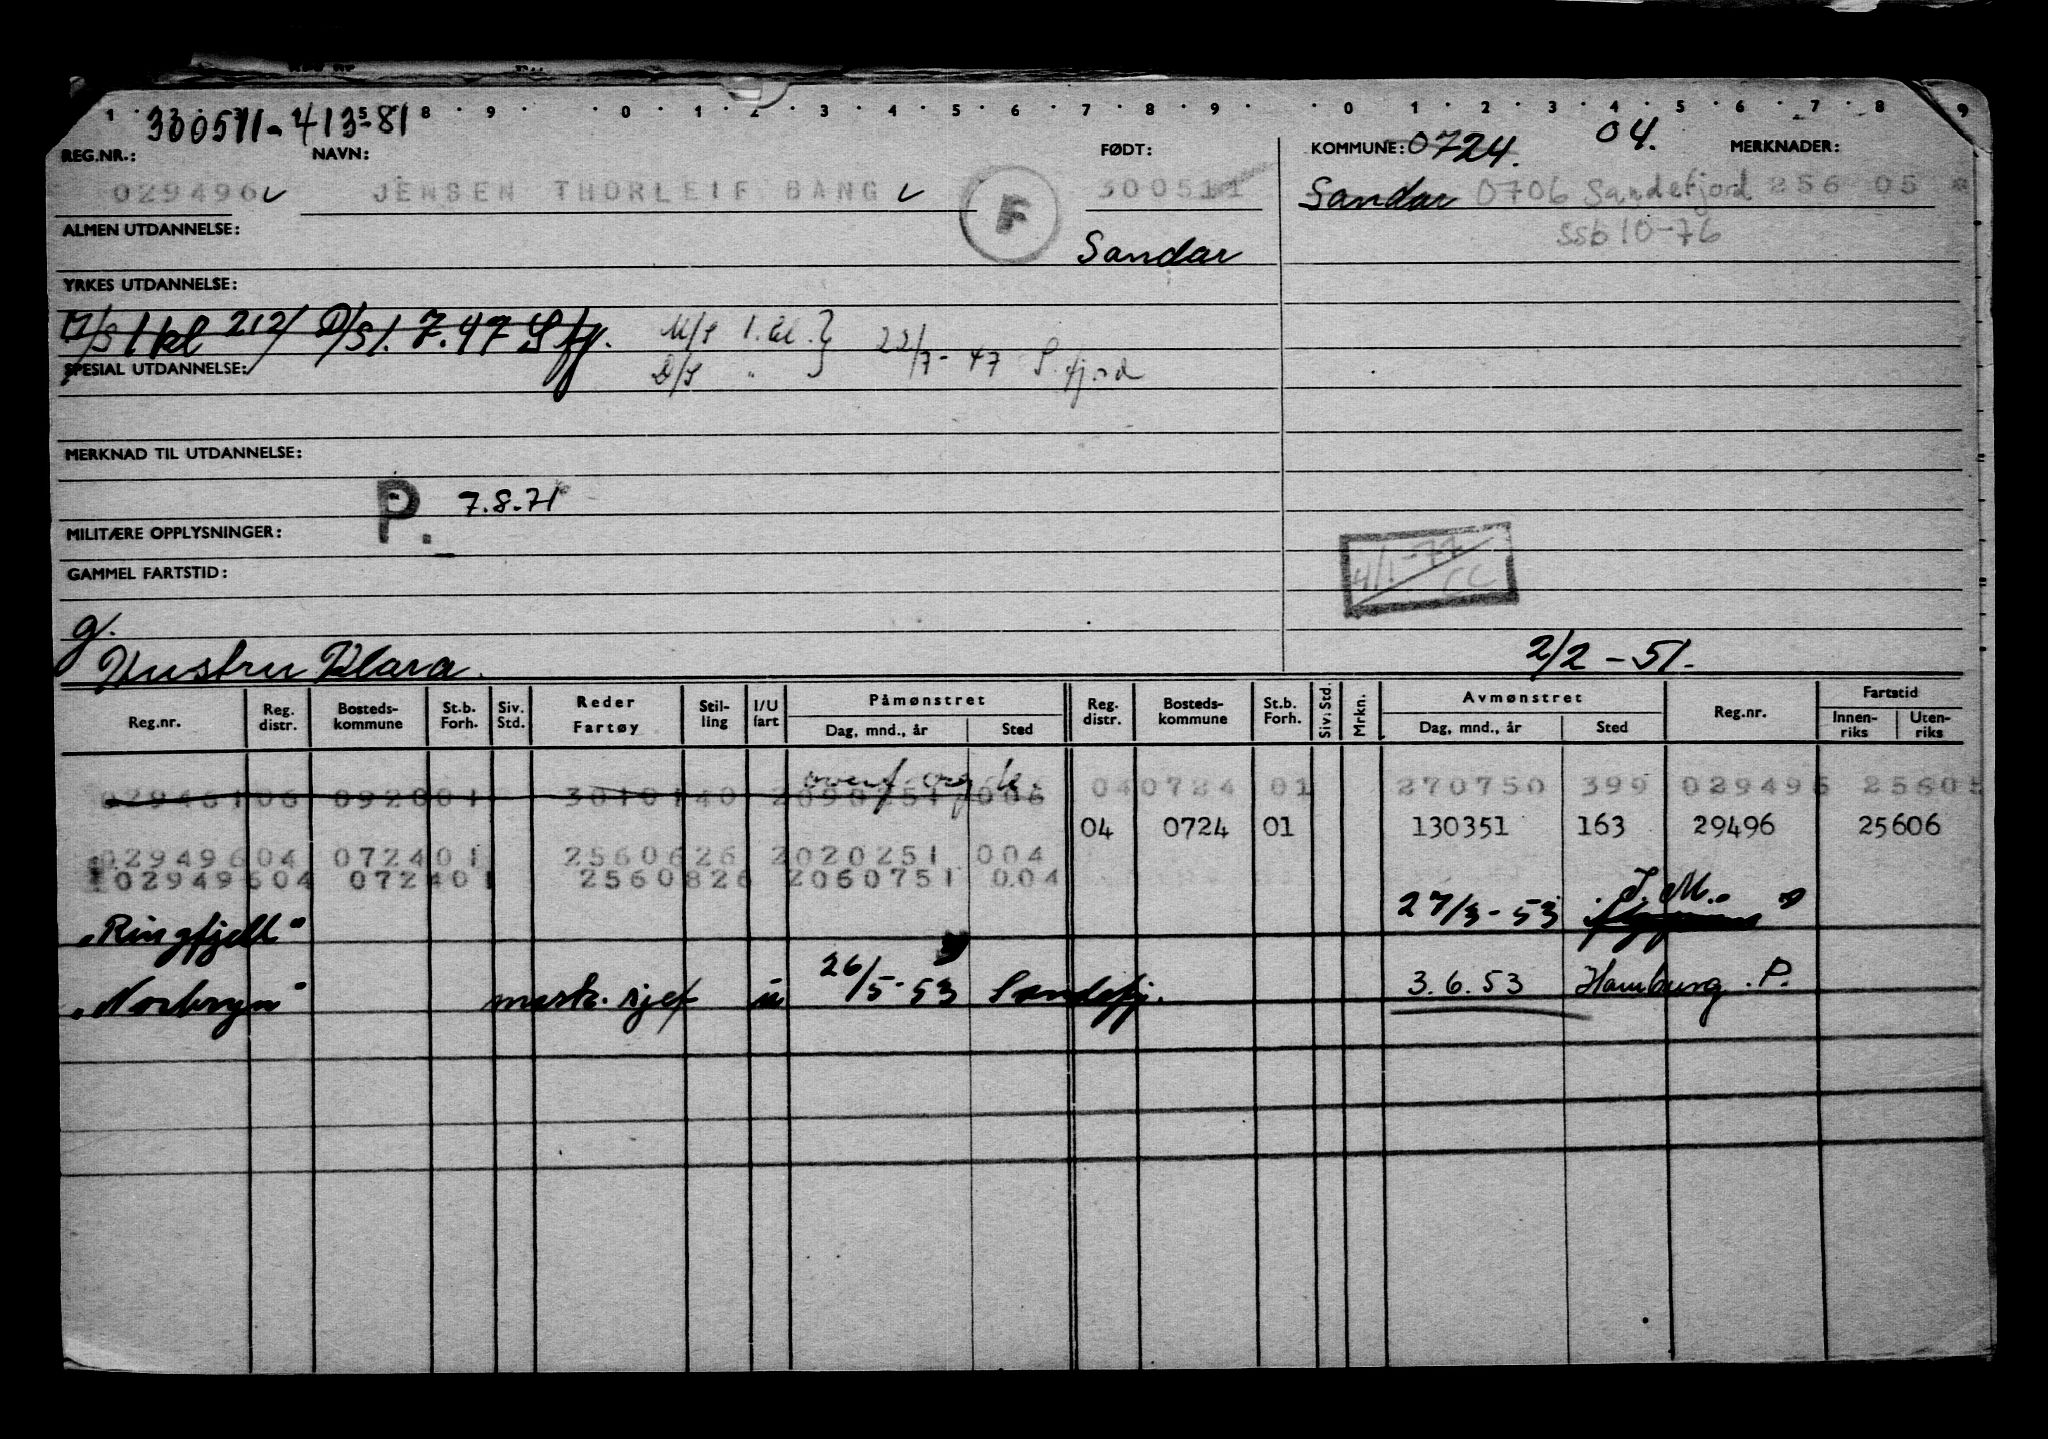 1 8 9 0 1 2 3 4 5 6 7 8 9 0 1 2 3 4 5 6 7 8 9
300511-41381
REG.NR.: NAVN: FØDT: KOMMUNE: 0724. 04. MERKNADER:
029496 JENSEN THORLEIF BANG F 300511 Sandar 0706 Sandefjord 256 05
ALMEN UTDANNELSE: Sandar ssb 10-76
YRKES UTDANNELSE:
M/S 1 kl 212/ D/S 1.7.47 Sfj. M/S 1. kl. } 22/7-47 S.fjord
SPESIAL UTDANNELSE: D/S "
MERKNAD TIL UTDANNELSE:
P. 7.8.71
MILITÆRE OPPLYSNINGER:
4/1-77
GAMMEL FARTSTID:
g.
Hustru Klara. 2/2-51.
Reg.nr. Reg. distr. Bosteds-kommune St.b. Forh. Siv. Std. Reder Fartøy Stil-ling I/U fart Påmønstret Dag, mnd., år Sted Reg. distr. Bosteds-kommune St.b. Forh. Siv. Std. Mrkn. Avmønstret Dag, mnd., år Sted Reg.nr. Fartstid Innen-riks Uten-riks
040724 01 270750 399 029496 25605
04 0724 01 130351 163 29496 25606
02949604 072401 2560626 2020251 004
02949604 072401 2560826 2060751 004
"Ringfjell" 27/3-53 J.M.
"Norbryn" mask. sjef u 26/5-53 Sandefj. 3.6.53 Hamburg. P.